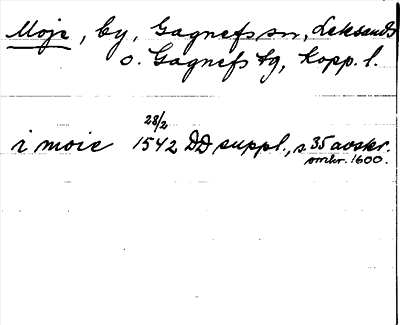 Moje, by, Gagnefs sn, Leksands
o. Gagnefs tg, Kopp. l.
i moie 1542 28/2 DD suppl., s. 35 avskr.
omkr. 1600.